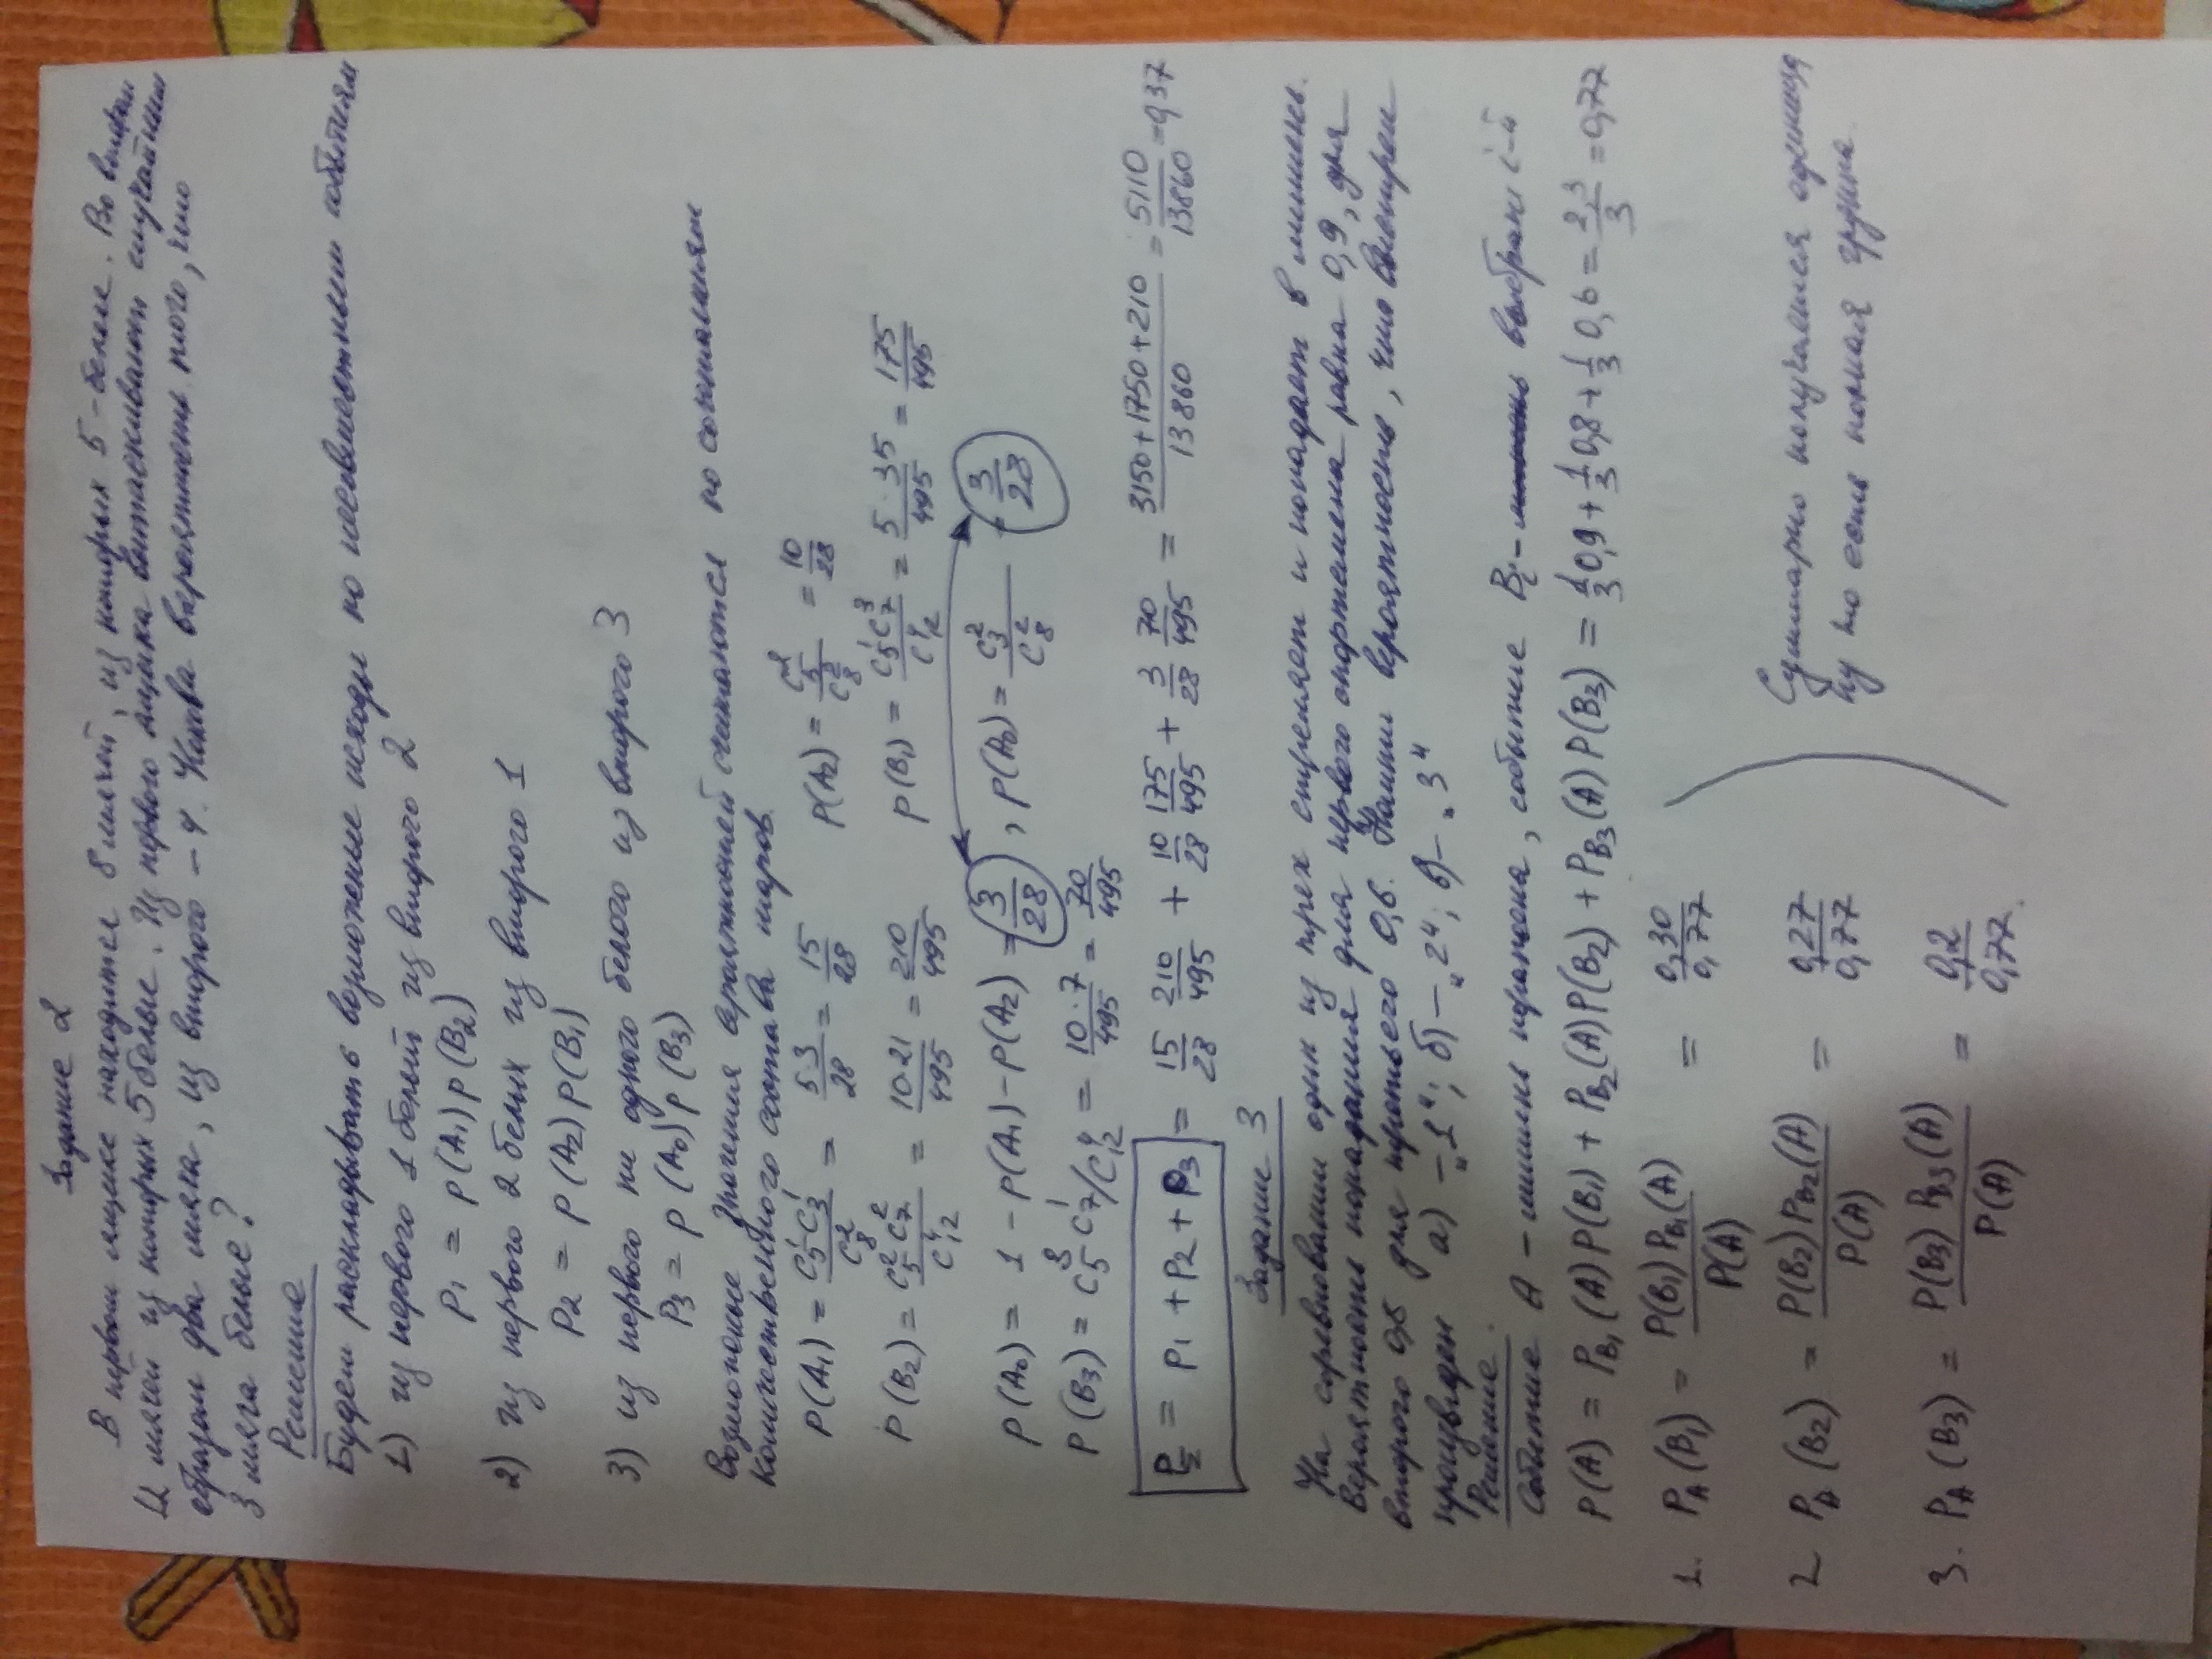 Задание 2
В первом ящике находится 8 мячей, из которых 5 - белые. Во втором
12 мячей из которых 5 белые. Из первого ящика вытаскивают случайным
образом два мяча, из второго - 4. Какова вероятность того, что
3 мяча белые?
Решение
Будем раскладывать возможные исходы по несовместным событиям
1) из первого 1 белый из второго 2
p₁ = p(A₁) p(B₂)
2) из первого 2 белых из второго 1
p₂ = p(A₂) p(B₁)
3) из первого ни одного белого из второго 3
p₃ = p(A₀) p(B₃)
Возможные значения вероятностей считаются по сочетаниям
количественного состава шаров.
P(A₁) = C₅¹C₃¹/C₈² = 5·3/28 = 15/28 p(A₂) = C₅²/C₈² = 10/28
P(B₂) = C₅²C₇²/C₁₂⁴ = 10·21/495 = 210/495 p(B₁) = C₅¹C₇³/C₁₂⁴ = 5·35/495 = 175/495
p(A₀) = 1 - p(A₁) - p(A₂) = 3/28, p(A₀) = C₃²/C₈² = 3/28
P(B₃) = C₅³C₇¹/C₁₂⁴ = 10·7/495 = 70/495
P_Σ = p₁ + p₂ + p₃ = 15/28 210/495 + 10/28 175/495 + 3/28 70/495 = 3150+1750+210/13860 = 5110/13860 = 0,37
Задание 3
На соревновании один из трех стреляет и попадает в мишень.
Вероятность попадания для первого спортсмена равна 0,9, для
второго 0,8 для третьего 0,6. Найти вероятность, что выстрел
произведен а) - „1"; б) - „2"; в) - „3"
Решение.
Событие A - мишень поражена, событие Bᵢ - выбран i-й
P(A) = P_B₁(A) P(B₁) + P_B₂(A) P(B₂) + P_B₃(A) P(B₃) = 1/3 0,9 + 1/3 0,8 + 1/3 0,6 = 2,3/3 = 0,77
1. P_A(B₁) = P(B₁) P_B₁(A)/P(A) = 0,30/0,77
2 P_A(B₂) = P(B₂) P_B₂(A)/P(A) = 0,27/0,77
Суммарно получается единица
ну то есть полная группа.
3. P_A(B₃) = P(B₃) P_B₃(A)/P(A) = 0,2/0,77.